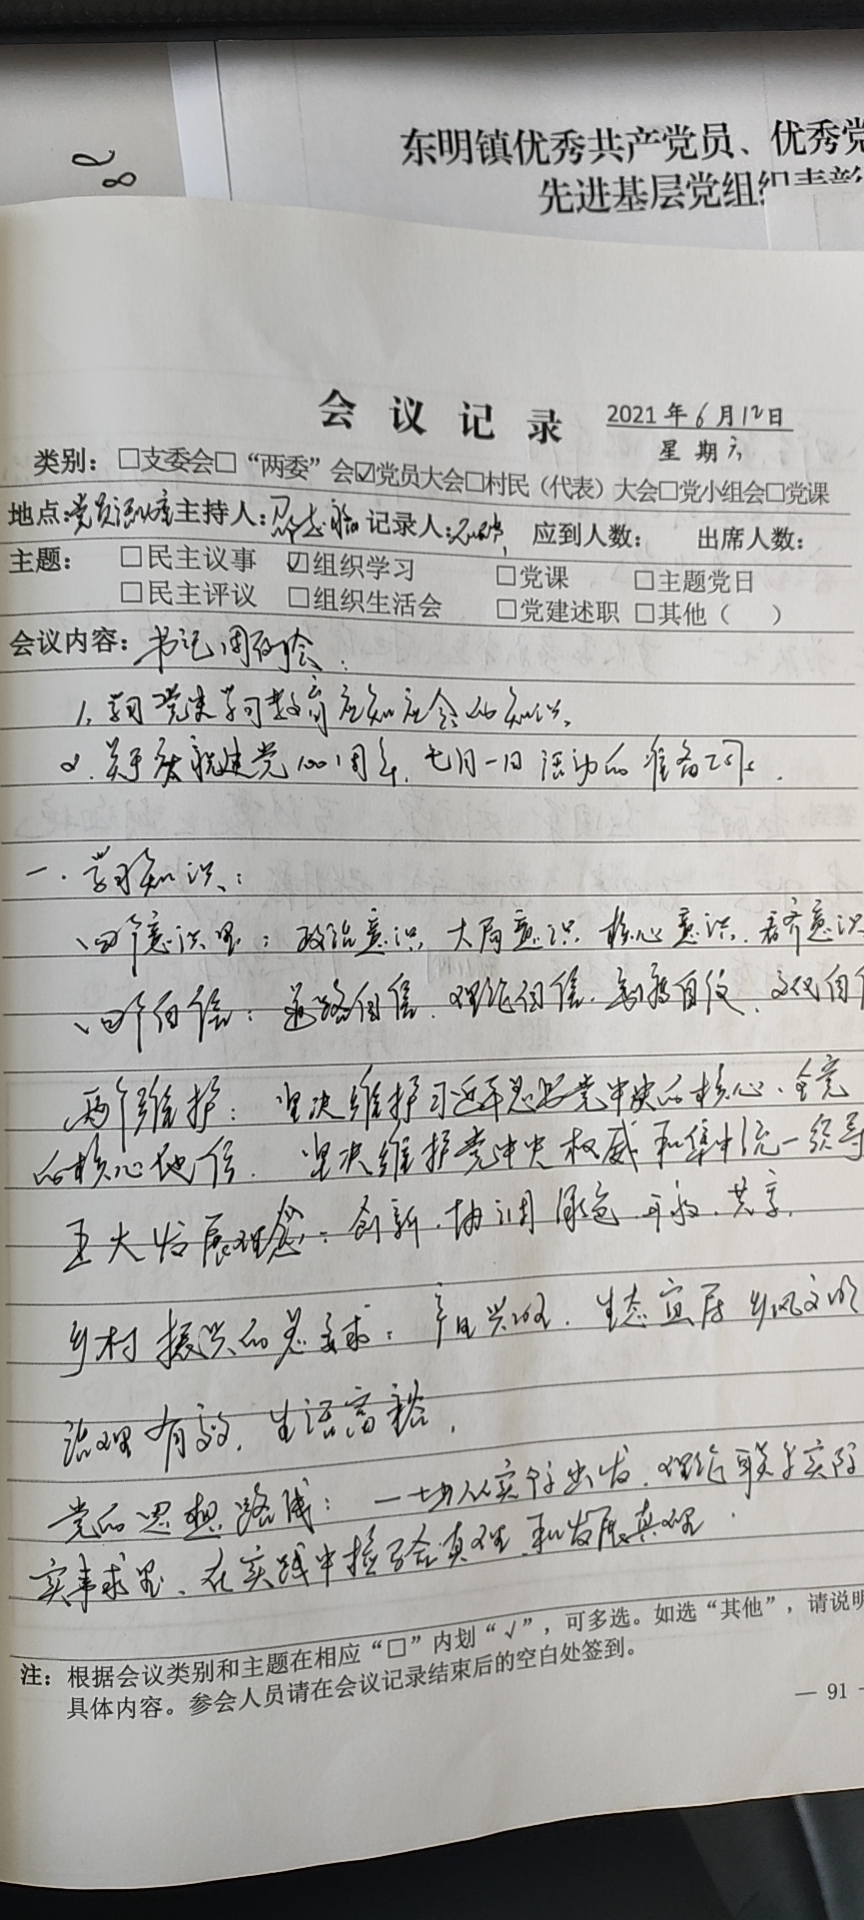 东明镇优秀共产党员、优秀党
先进基层党组织表彰
会议记录 2021年6月12日
星期六
类别：□支委会□“两委”会☑党员大会□村民（代表）大会□党小组会□党课
地点：党员活动室 主持人： 记录人： 应到人数： 出席人数：
主题： □民主议事 ☑组织学习 □党课 □主题党日
□民主评议 □组织生活会 □党建述职 □其他（ ）
会议内容：书记周例会：
1、学习党史学习教育应知应会的知识。
2、关于庆祝建党100周年，七月一日活动的准备工作。
一、学习知识：
四个意识是：政治意识 大局意识 核心意识、看齐意识
四个自信：道路自信、理论自信、制度自信、文化自信
两个维护：坚决维护习近平总书党中央的核心、全党
的核心地位、坚决维护党中央权威和集中统一领导
五大发展理念：创新、协调 绿色、开放、共享。
乡村振兴的总要求：产业兴旺、生态宜居 乡风文明
治理有效、生活富裕。
党的思想路线：一切从实际出发、理论联系实际
实事求是、在实践中检验真理和发展真理。
注：根据会议类别和主题在相应“□”内划“√”，可多选。如选“其他”，请说明
具体内容。参会人员请在会议记录结束后的空白处签到。
— 91 —